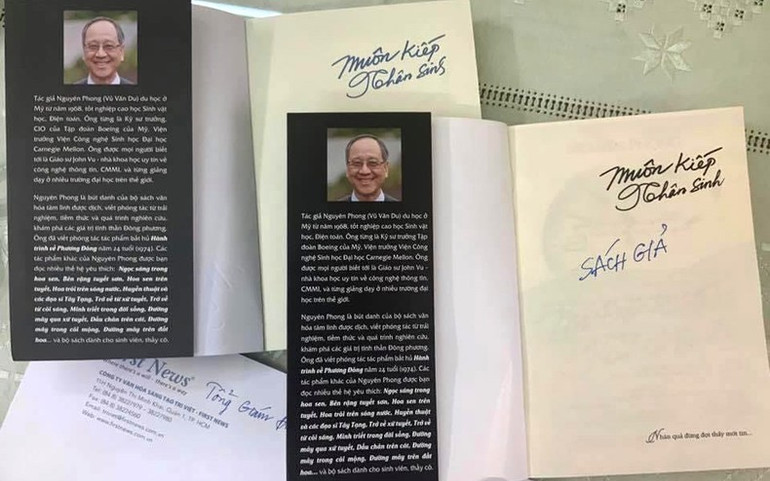 Muôn Kiếp
Nhân Sinh
Tác giả Nguyên Phong (Vũ Văn Du) du học ở
Mỹ từ năm 1968, tốt nghiệp cao học Sinh vật
học, Điện toán. Ông từng là Kỹ sư trưởng,
CIO của Tập đoàn Boeing của Mỹ, Viện
trưởng Viện Công nghệ Sinh học Đại học
Carnegie Mellon. Ông được mọi người biết
tới là Giáo sư John Vu - nhà khoa học uy tín về
công nghệ thông tin, CMMI, và từng giảng
dạy ở nhiều trường đại học trên thế giới.
Nguyên Phong là bút danh của bộ sách văn
hóa tâm linh được dịch, viết phóng tác từ trải
nghiệm, tiềm thức và quá trình nghiên cứu,
khám phá các giá trị tinh thần Đông phương.
Ông đã viết phóng tác tác phẩm bất hủ Hành
trình về Phương Đông năm 24 tuổi (1974). Các
tác phẩm khác của Nguyên Phong được bạn
đọc nhiều thế hệ yêu thích: Ngọc sáng trong
hoa sen, Bên rặng tuyết sơn, Hoa sen trên
tuyết, Hoa trôi trên sóng nước, Huyền thuật và
các đạo sĩ Tây Tạng, Trở về từ xứ tuyết, Trở về
từ cõi sáng, Minh triết trong đời sống, Đường
mây qua xứ tuyết, Dấu chân trên cát, Đường
mây trong cõi mộng, Đường mây trên đất
hoa... và bộ sách dành cho sinh viên, thầy cô.
Muôn Kiếp
Nhân Sinh
SÁCH GIẢ
Nhân quả đừng đợi thấy mới tin...
Tác giả Nguyên Phong (Vũ Văn Du) du học ở
Mỹ từ năm 1968, tốt nghiệp cao học Sinh vật
học, Điện toán. Ông từng là Kỹ sư trưởng của
Tập đoàn Boeing của Mỹ, Viện trưởng Viện Công
nghệ Sinh học Đại học Carnegie Mellon. Ông
được mọi người biết tới là Giáo sư John Vu -
nhà khoa học uy tín về công nghệ thông tin,
CMMI, và từng giảng dạy ở nhiều trường đại
học trên thế giới.
Nguyên Phong là bút danh của bộ sách văn
hóa tâm linh được dịch, viết phóng tác từ trải
nghiệm, tiềm thức và quá trình nghiên cứu,
khám phá các giá trị tinh thần Đông phương.
Ông đã viết phóng tác tác phẩm bất hủ Hành
trình về Phương Đông năm 24 tuổi (1974). Các
tác phẩm khác của Nguyên Phong được bạn
đọc nhiều thế hệ yêu thích: Ngọc sáng trong
hoa sen, Bên rặng tuyết sơn, Hoa sen trên
tuyết, Hoa trôi trên sóng nước, Huyền thuật
và các đạo sĩ Tây Tạng, Trở về từ xứ tuyết, Trở về
từ cõi sáng, Minh triết trong đời sống, Đường
mây qua xứ tuyết, Dấu chân trên cát, Đường
mây trong cõi mộng, Đường mây trên đất
hoa... và bộ sách dành cho sinh viên, thầy cô.
First News
where there's a will - there's a way
CÔNG TY VĂN HÓA SÁNG TẠO TRÍ VIỆT - FIRST NEWS
11H Nguyễn Thị Minh Khai, Quận 1, TP. HCM
Web: www.firstnews.com.vn
Tổng Giám